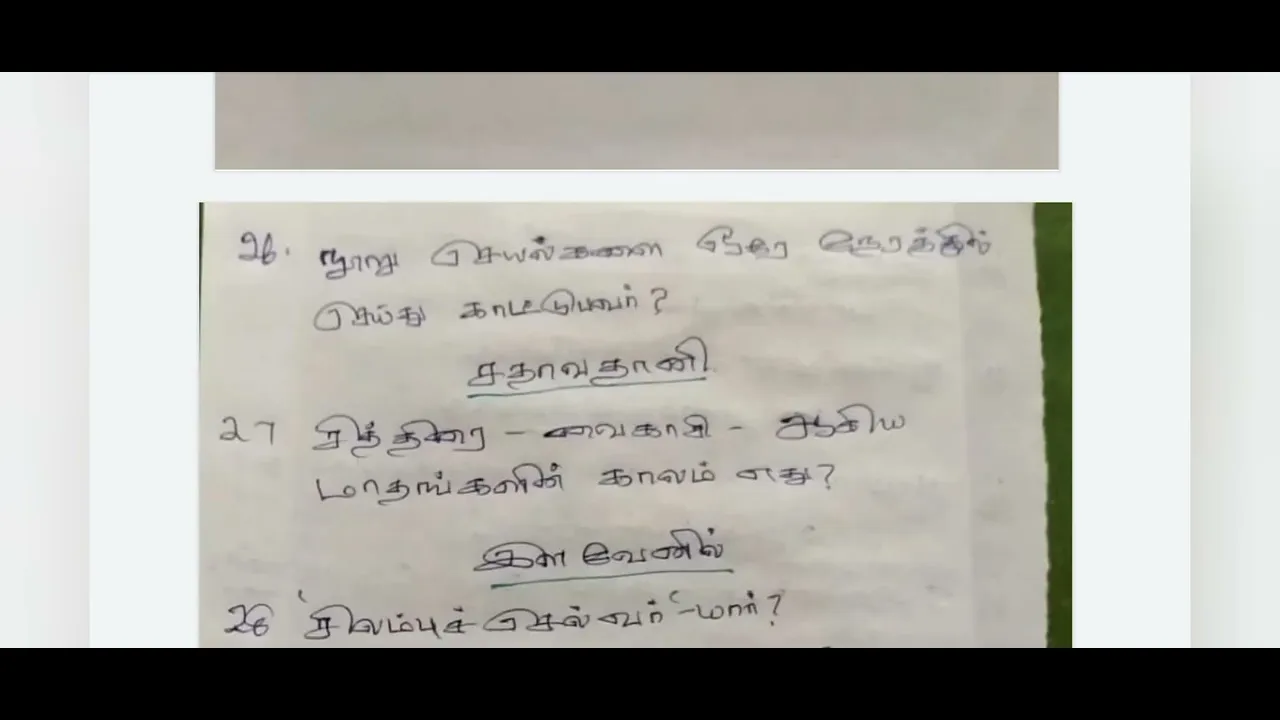 26. நூறு செயல்களை ஒரே நேரத்தில்
செய்து காட்டுபவர்?
சதாவதானி
27 சித்திரை - வைகாசி - ஆகிய
மாதங்களின் காலம் எது?
இளவேனில்
28 'சிலம்புச் செல்வர்' - யார்?